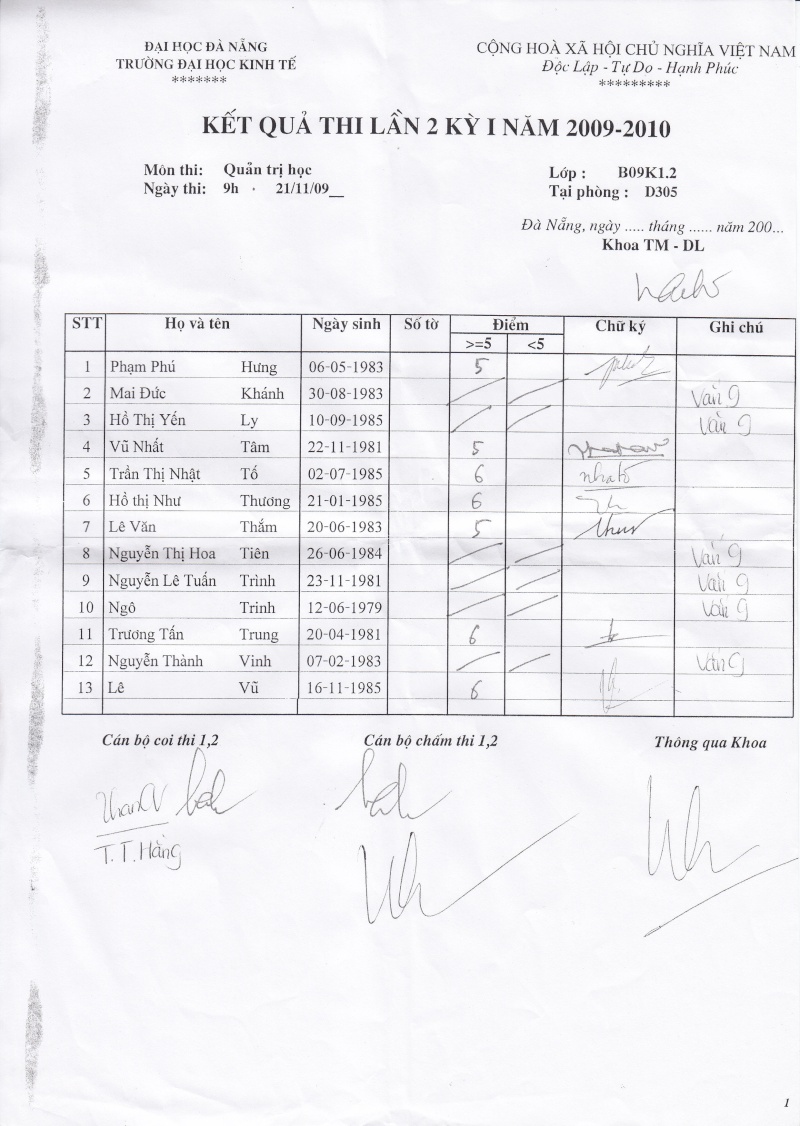 ĐẠI HỌC ĐÀ NẴNG
TRƯỜNG ĐẠI HỌC KINH TẾ
*******
CỘNG HOÀ XÃ HỘI CHỦ NGHĨA VIỆT NAM
Độc Lập - Tự Do - Hạnh Phúc
*********
KẾT QUẢ THI LẦN 2 KỲ I NĂM 2009-2010
Môn thi: Quản trị học
Ngày thi: 9h . 21/11/09__
Lớp : B09K1.2
Tại phòng : D305
Đà Nẵng, ngày ..... tháng ...... năm 200...
Khoa TM - DL
STT Họ và tên Ngày sinh Số tờ Điểm Chữ ký Ghi chú
>=5 <5
1 Phạm Phú Hưng 06-05-1983 5
2 Mai Đức Khánh 30-08-1983 Vắng
3 Hồ Thị Yến Ly 10-09-1985 Vắng
4 Vũ Nhất Tâm 22-11-1981 5
5 Trần Thị Nhật Tố 02-07-1985 6 nhatố
6 Hồ thị Như Thương 21-01-1985 6
7 Lê Văn Thắm 20-06-1983 5
8 Nguyễn Thị Hoa Tiên 26-06-1984 Vắng
9 Nguyễn Lê Tuấn Trình 23-11-1981 Vắng
10 Ngô Trinh 12-06-1979 Vắng
11 Trương Tấn Trung 20-04-1981 6
12 Nguyễn Thành Vinh 07-02-1983 Vắng
13 Lê Vũ 16-11-1985 6
Cán bộ coi thi 1,2 Cán bộ chấm thi 1,2 Thông qua Khoa
T.T.Hằng
1